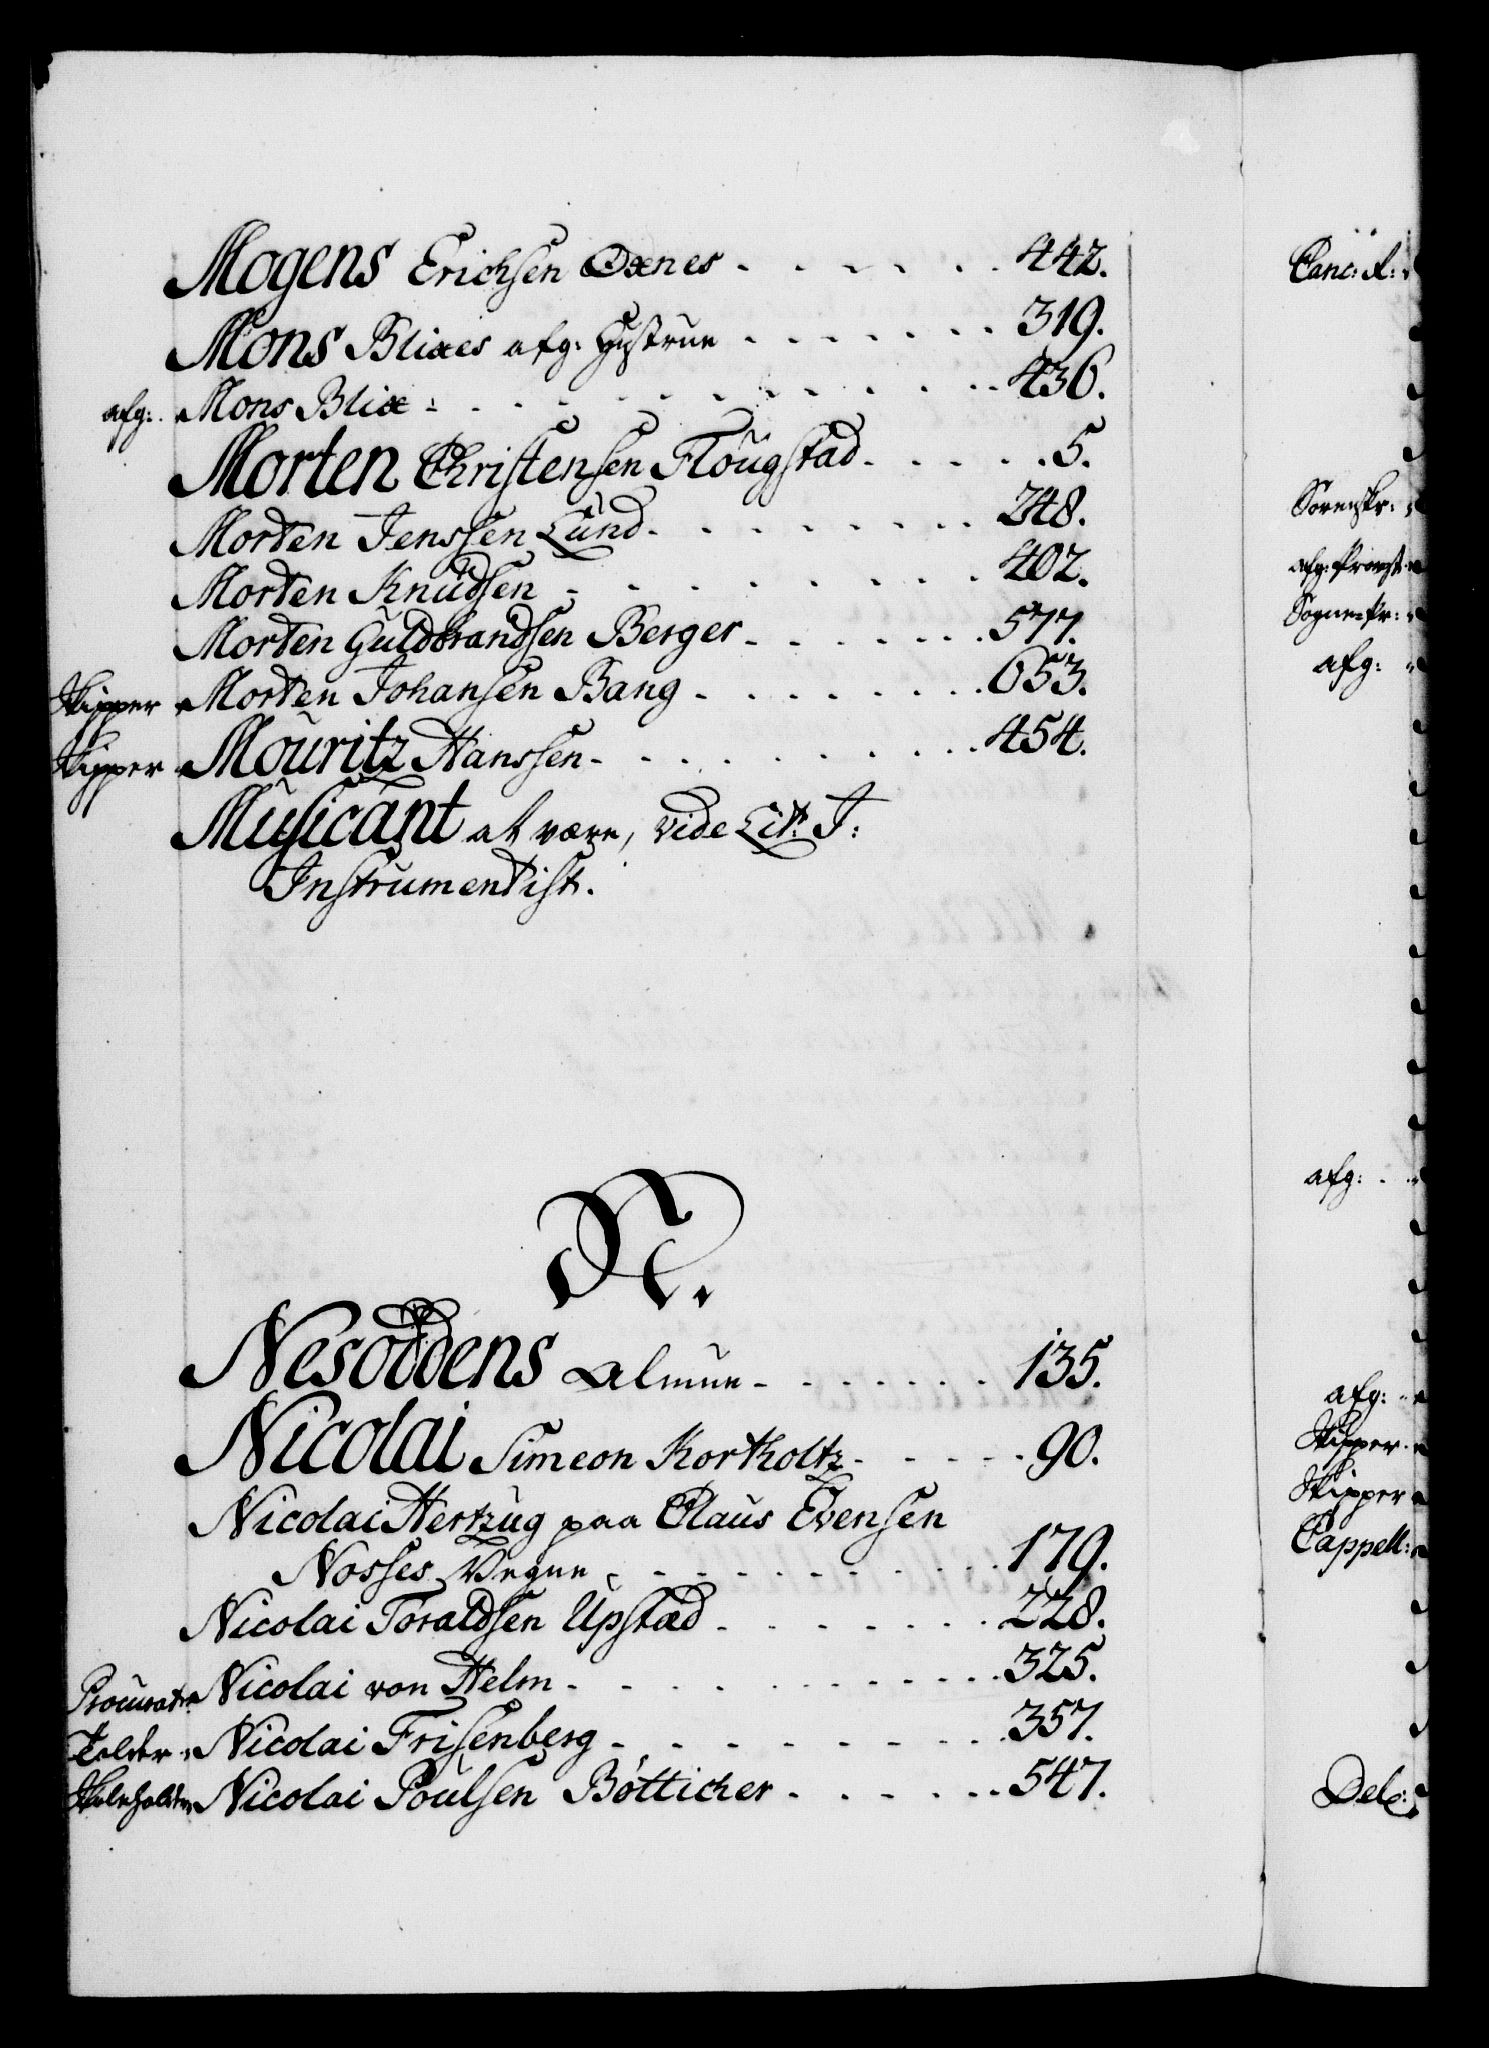 Mogens Erichsen Oxnes - - - - - 442.
Mons Blixes afg: Hustrue - - - - - - - 319.
afg: Mons Blix - - - - - - - - - - 436.
Morten Christensen Flougstad - - - - - 5.
Morten Jenssen Lund - - - - - - - - 248.
Morten Knudsen - - - - - - - - - 402.
Morten Guldbrandsen Berger - - - - - - - 577.
Skipper Morten Johansen Bang - - - - - - - - 653.
Skipper Mouritz Hanssen - - - - - - - - 454.
Musicant at være, vide Lit: J:
Instrumentist.
N.
Nesoddens Almue - - - - - - - 135.
Nicolai Simeon Kortholtz - - - - - 90.
Nicolai Hertzug paa Claus Evensen
Nosses Vegne - - - - - - - - - 179.
Nicolai Toraldsen Upstad - - - - - - - 228.
Procurat: Nicolai von Helm - - - - - - - - - 325.
Tolder Nicolai Frisenberg - - - - - - - - 357.
Skoleholder Nicolai Poulsen Bötticher - - - - - - 547.
Canc: R:
Sorenskr:
afg: Provst
Sognepr:
afg:
afg:
afg:
Skipper
Skipper
Cappell: